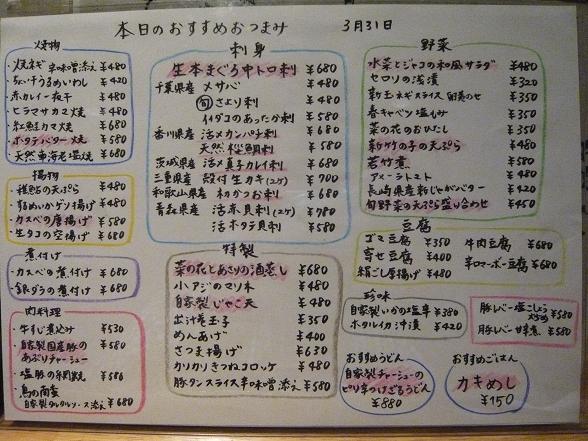 本日のおすすめおつまみ 3月31日
焼物
・焼ネギ 辛味噌添え ¥480
・ちぃ干うるめいわし ¥420
・赤カレイ一夜干 ¥480
・ヒラマサカマ焼 ¥480
・紅鮭カマ焼 ¥680
・ホタテバター焼 ¥580
・天然車海老塩焼 ¥680
揚物
・稚鮎の天ぷら ¥480
・するめいかゲソ揚げ ¥480
・カスベの唐揚げ ¥580
・生タコの空揚げ ¥680
煮付け
・カスベの煮付け ¥680
・銀ダラの煮付け ¥680
肉料理
・牛すじ煮込み ¥530
・自家製国産豚の
あぶりチャーシュー ¥580
・塩豚の網焼 ¥586
・鳥の南蛮
自家製タルタルソース添え ¥680
刺身
生本まぐろ中トロ刺 ¥680
千葉県産 メサバ ¥480
旬 さより刺 ¥480
イイダコのあったか刺 ¥580
香川県産 活メカンパチ刺 ¥680
天然 桜鯛刺 ¥680
茨城県産 活〆真子カレイ刺 ¥680
三重県産 殻付生カキ(2ケ) ¥700
和歌山県産 初がつお刺 ¥680
青森県産 活赤貝刺(2ケ) ¥780
活ホタテ貝刺 ¥580
特製
菜の花とあさりの酒蒸し ¥680
小アジのマリネ ¥480
自家製じゃこ天 ¥480
出汁巻玉子 ¥350
めんあげ ¥400
さつま揚げ ¥630
カリカリきつねコロッケ ¥480
豚タンスライス辛味噌添え ¥580
野菜
水菜とジャコの和風サラダ ¥480
セロリの浅漬 ¥320
新玉ネギスライス ¥350
春キャベツ塩もみ ¥350
菜の花のおひたし ¥350
新竹の子の天ぷら ¥480
若竹煮 ¥580
アメーラトマト ¥480
長崎県産新じゃがバター ¥420
旬野菜の天ぷら盛り合わせ ¥450
豆腐
ゴマ豆腐 ¥350
寄せ豆腐 ¥400
絹ごし厚揚げ ¥480
牛肉豆腐 ¥680
辛口マーボー豆腐 ¥680
珍味
自家製いかの塩辛 ¥380
ホタルイカ沖漬 ¥420
豚レバー塩こしょう
炒め ¥580
豚レバー甘辛煮 ¥580
おすすめうどん
自家製チャーシューの
ピリ辛つけざるうどん
¥880
おすすめごはん
カキめし
¥150